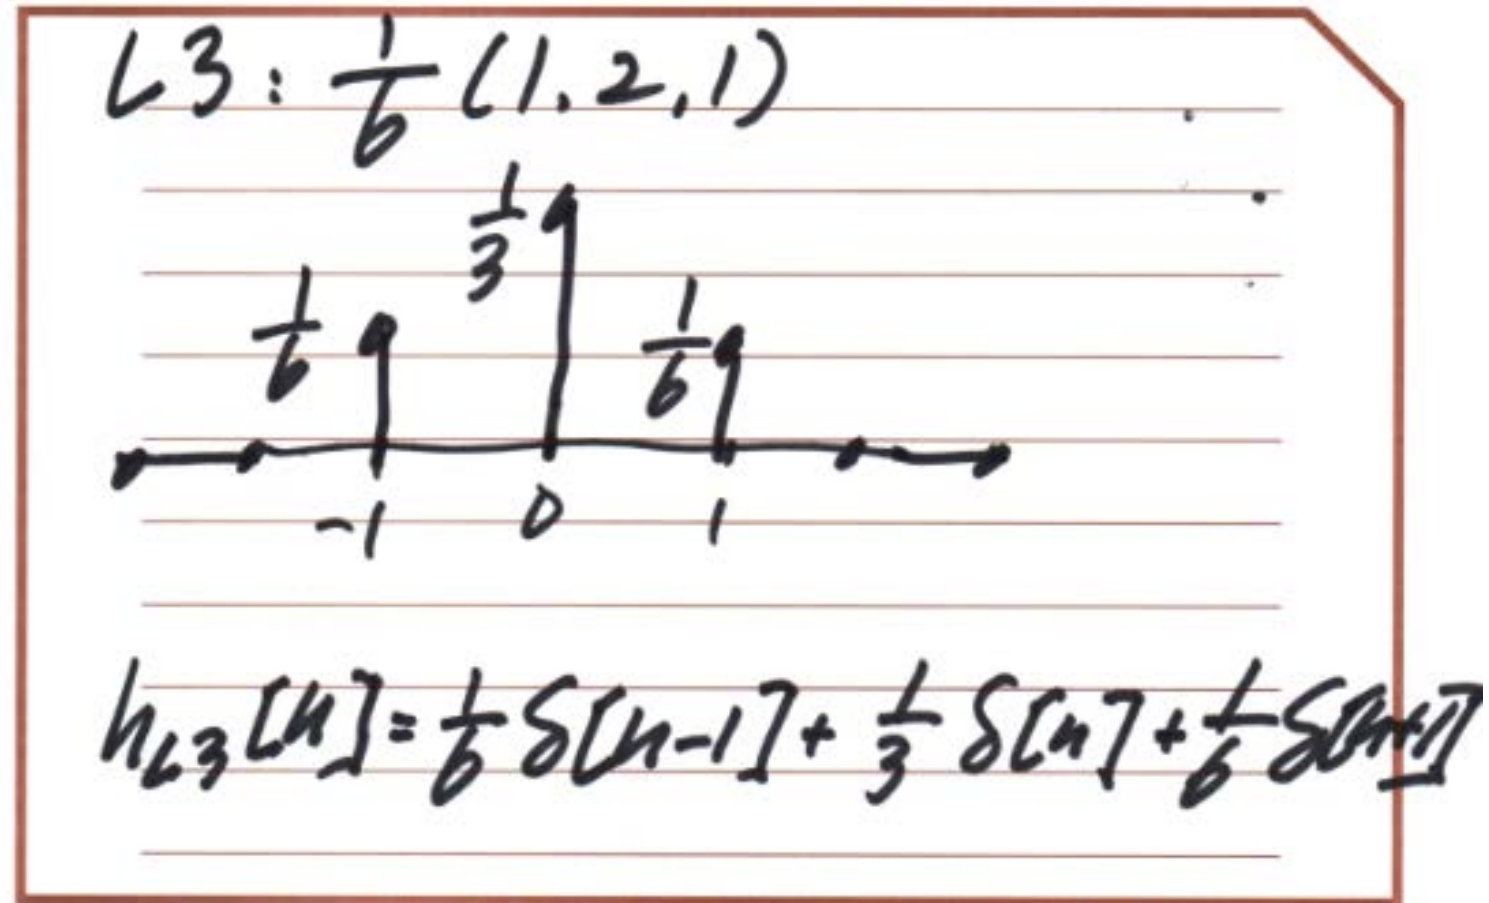 L3: 1/6 (1, 2, 1)
1/3
1/6 1/6
-1 0 1
h_L3[n] = 1/6 δ[n-1] + 1/3 δ[n] + 1/6 δ[n+1]